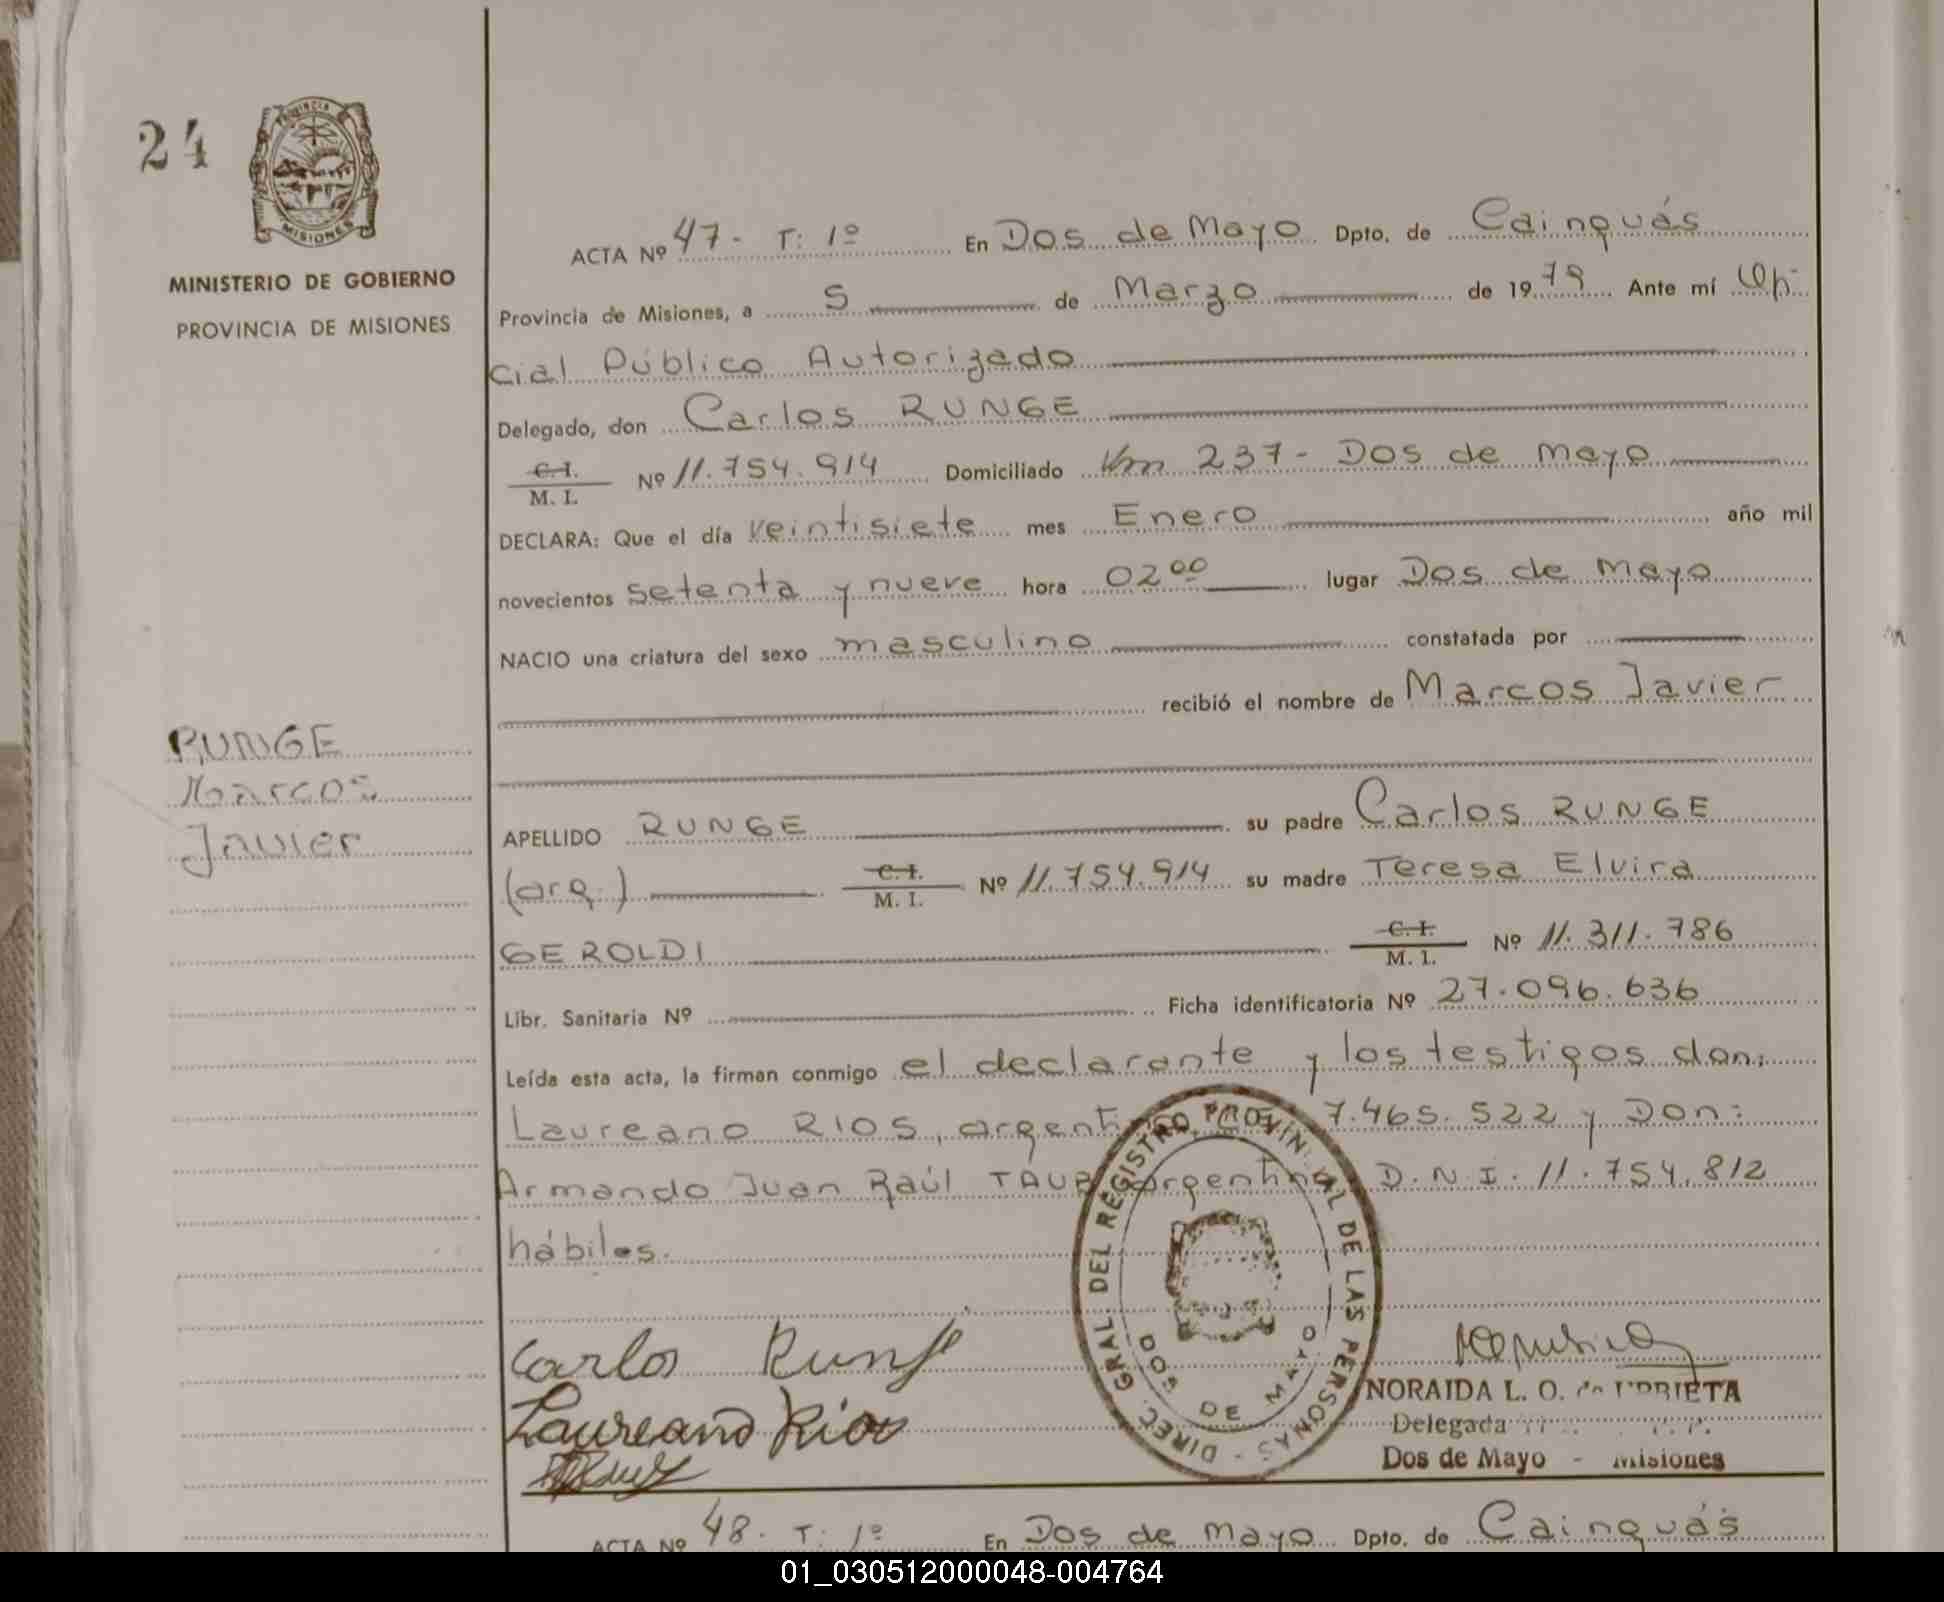 24
PROVINCIA
MISIONES
MINISTERIO DE GOBIERNO
PROVINCIA DE MISIONES
RUNGE
Marcos
Javier
ACTA Nº 47- T: 1º En Dos de Mayo Dpto. de Cainguás
Provincia de Misiones, a 5 de Marzo de 1979 Ante mí Ofi-
cial Público Autorizado
Delegado, don Carlos RUNGE
C.I. M. I. Nº 11.754.914 Domiciliado Km 237- Dos de Mayo
DECLARA: Que el día veintisiete mes Enero año mil
novecientos setenta y nueve hora 02 00 lugar Dos de Mayo
NACIO una criatura del sexo masculino constatada por
recibió el nombre de Marcos Javier
APELLIDO RUNGE su padre Carlos RUNGE
(arg.) C.I. M. I. Nº 11.754.914 su madre Teresa Elvira
GEROLDI C.I. M. I. Nº 11.311.786
Libr. Sanitaria Nº Ficha identificatoria Nº 27.096.636
Leída esta acta, la firman conmigo el declarante y los testigos don:
Laureano RIOS, argentino, 7.465.522 y Don:
Armando Juan Raúl argentino D.N.I. 11.754.812
hábiles.
DIREC. GRAL DEL REGISTRO PROVINCIAL DE LAS PERSONAS -
DOS DE MAYO
Carlos Runge
Laureano Rios
NORAIDA L. O. de URRIETA
Delegada
Dos de Mayo - Misiones
ACTA Nº 48- T: 1º En Dos de Mayo Dpto. de Cainguás
01_030512000048-004764